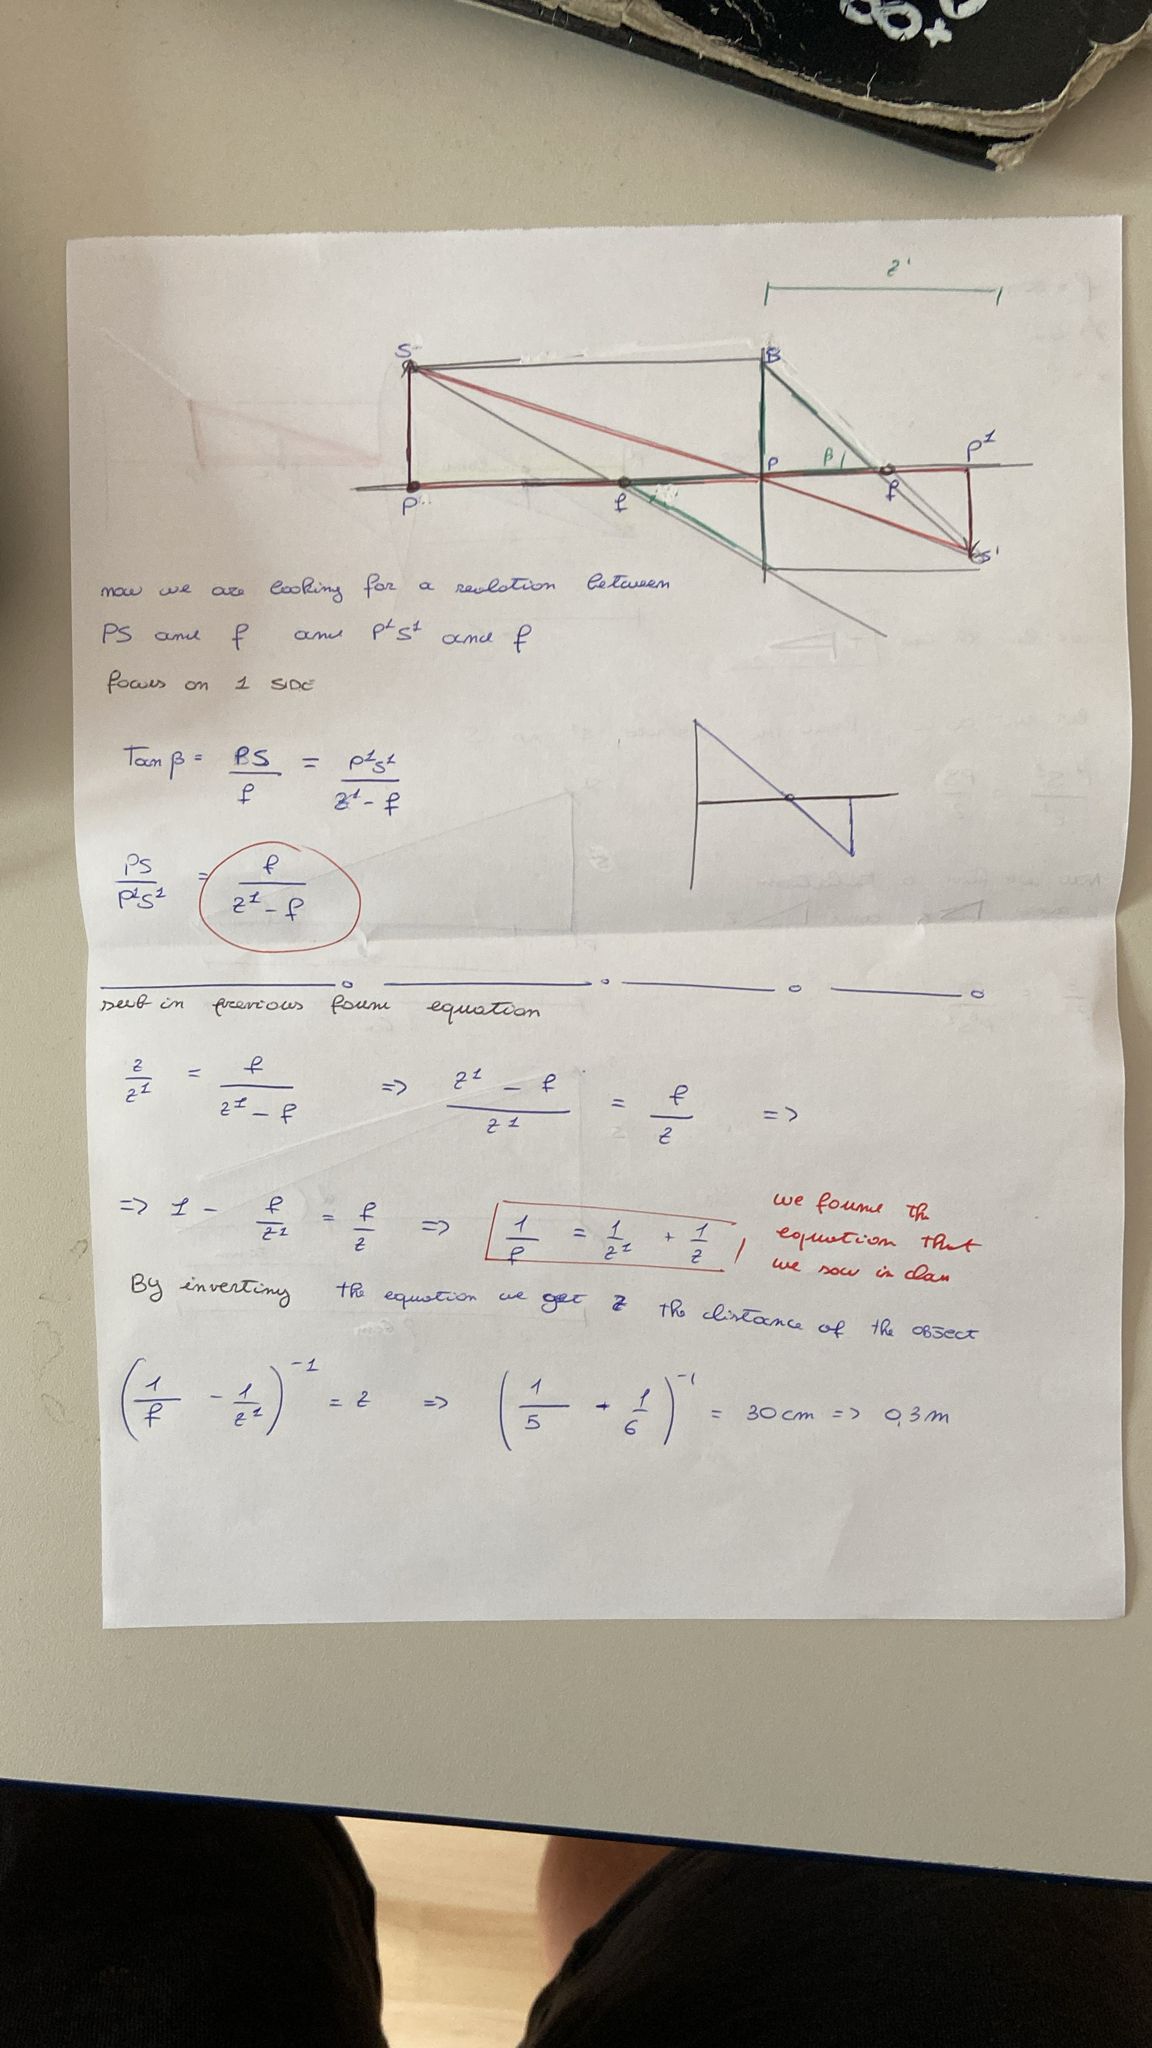 z'
S
B
P
β
P¹
P
f
f
S'
now we are looking for a revlation between
PS and f and P¹S¹ and f
focus on 1 SIDE
Tan β = BS / f = P¹S¹ / z¹ - f
PS / P¹S¹ = f / z¹ - f
sub in previous founn equation
z / z¹ = f / z¹ - f => z¹ - f / z¹ = f / z =>
=> 1 - f / z¹ = f / z => 1 / f = 1 / z¹ + 1 / z
we founne the
equation that
we saw in clan
By inverting the equation we get z the distance of the obsect
(1 / f - 1 / z¹)⁻¹ = z => (1 / 5 - 1 / 6)⁻¹ = 30 cm => 0,3 m